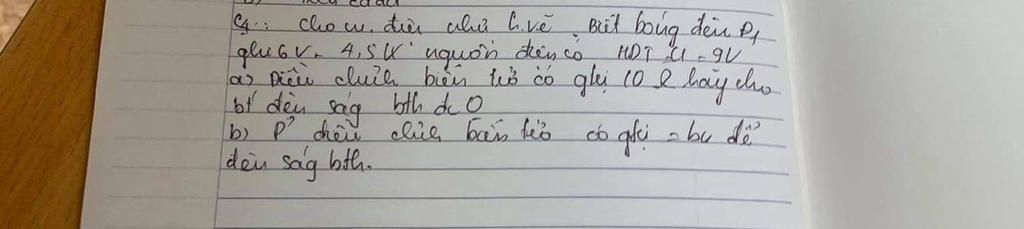 C4: cho m. điện như h.vẽ Biết bóng đèn Đ1
ghi 6V - 4,5W nguồn điện có HĐT U = 9V
a) Điều chỉnh biến trở có gtrị 10 Ω hãy cho
bt đèn ság bth đc O
b) P² điều chỉnh biến trở có gtrị = bn để
đèn ság bth.